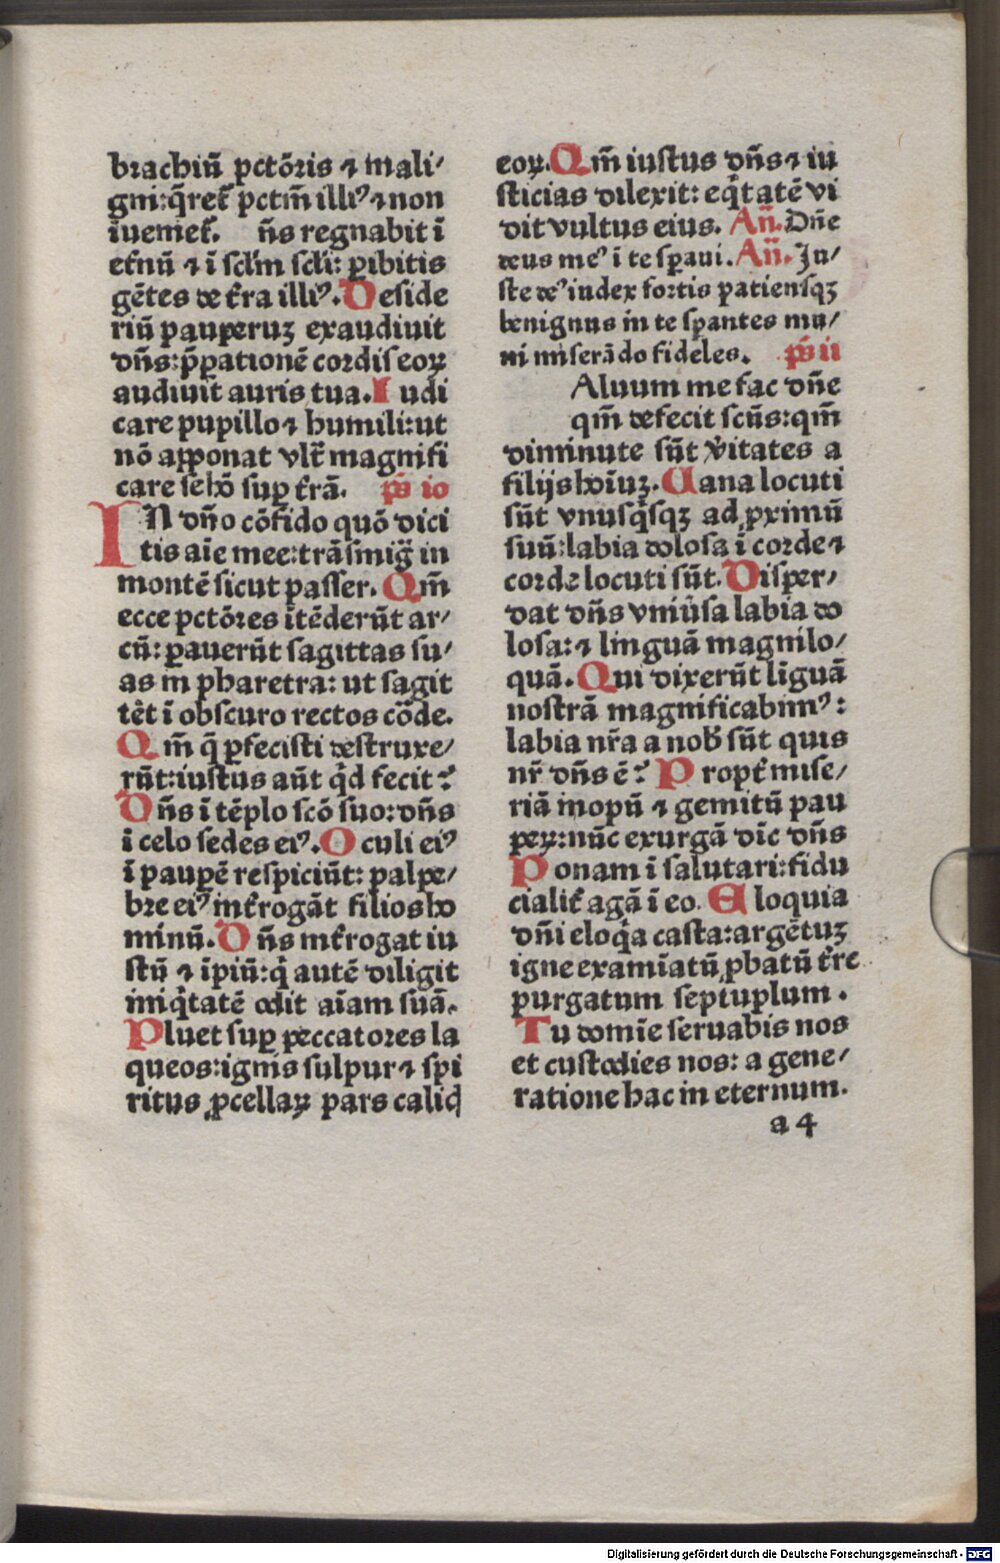 brachiū pctōris ⁊ mali⸗
gni: q̄ret᷑ pctm̄ illi⁹ ⁊ non
īueniet᷑. ñs regnabit ī
et᷑nū ⁊ ī scl̄m scl̄i: ꝑibitis
gētes de t᷑ra illi⁹. Deside
riū pauperuꝫ exaudiuit
dn̄s: p̄pationē cordis eoꝝ
audiuit auris tua. I udi
care pupillo ⁊ humili: ut
nō apponat vlt᷑ magnifi
care se hō suꝑ t᷑rā. ps̄ io
IN dn̄o cōfido quō dici
tis aīe mee: trāsmigͣ in
montē sicut passer. Qm̄
ecce pctōres ītēderūt ar⸗
cū: ꝑauerūt sagittas su⸗
as in pharetra: ut sagit
tēt ī obscuro rectos cōde.
Qm̄ q̄ ꝑfecisti destruxe⸗
rūt: iustus aūt qͥd fecit?
Dn̄s ī tēplo scō suo: dn̄s
ī celo sedes ei⁹. Oculi ei⁹
ī pauꝑē respiciūt: palpe⸗
bre ei⁹ int᷑rogāt filios ho
minū. Dn̄s int᷑rogat iu
stū ⁊ īpiū: qͥ autē diligit
iniqͥtatē odit aīam suā.
Pluet suꝑ peccatores la
queos: ignis sulpur ⁊ spi
ritus ꝓcellaꝝ pars caliq̄
eoꝝ. Qm̄ iustus dn̄s ⁊ iu
sticias dilexit: eqͥtatē vi
dit vultus eius. Añ. Dn̄e
deus me⁹ ī te sꝑaui. Añ. Iu⸗
ste de⁹ iudex fortis patiensqꝫ
benignus in te sꝑantes mu⸗
ni miserādo fideles. ps̄ ii
Aluum me fac dn̄e
qm̄ defecit scūs: qm̄
diminute sūt v̓itates a
filijs hoīuꝫ. Uana locuti
sūt vnusqͥsqꝫ ad ꝓximū
suū: labia dolosa ī corde ⁊
corde locuti sūt. Disper⸗
dat dn̄s vniūsa labia do
losa: ⁊ linguā magnilo⸗
quā. Qui dixerūt līguā
nostrā magnificabim⁹:
labia nr̄a a nob̄ sūt quis
nr̄ dn̄s ē? Propt᷑ mise⸗
riā inopū ⁊ gemitū pau
peꝝ: nūc exurgā dic̄ dn̄s
Ponam ī salutari: fidu
cialit᷑ agā ī eo. Eloquia
dn̄i eloqͥa casta: argētuꝫ
igne examīatū ꝓbatū t᷑re
purgatum septuplum.
Tu domīe seruabis nos
et custodies nos: a gene⸗
ratione hac in eternum.
a 4
Digitalisierung gefördert durch die Deutsche Forschungsgemeinschaft - DFG